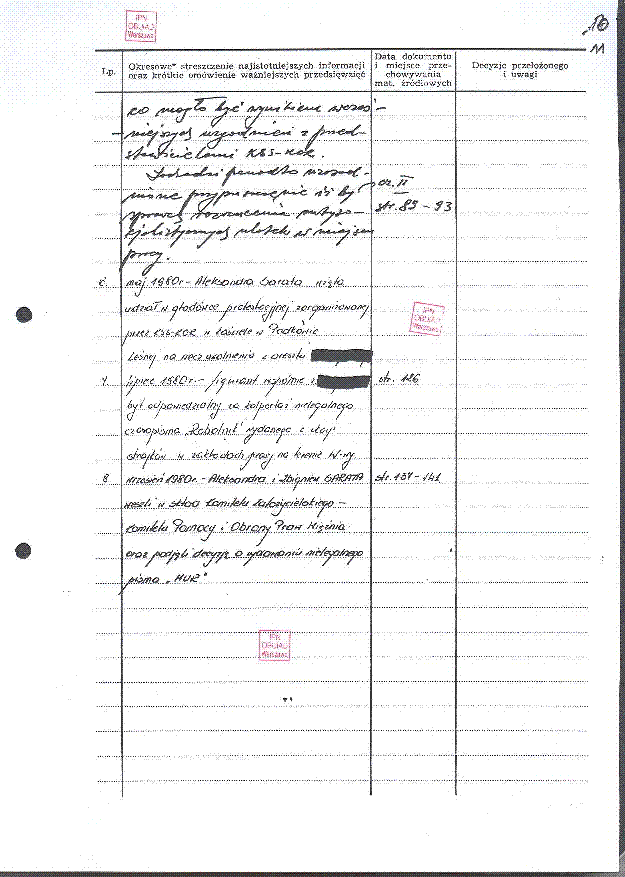 IPN
OBUiAD
Warszawa
10
11
Lp.
Okresowe* streszczenie najistotniejszych informacji
oraz krótkie omówienie ważniejszych przedsięwzięć
Data dokumentu
i miejsce prze-
chowywania
mat. źródłowych
Decyzje przełożonego
i uwagi
co mogło być wynikiem wcześ-
niejszych uzgodnień z przed-
stawicielami KSS-KOR.
przypuszczenie iż by
cz. II
str. 89 - 93
ulotek w miejscu
pracy.
6. maj 1980r - Aleksandra Sarata wzięła
udział w głodówce protestacyjnej zorganizowanej
przez KSS-KOR w kościele w Podkowie
Leśnej na rzecz uwolnienia z aresztu
IPN
OBUiAD
Warszawa
7. lipiec 1980r. - figurant wspólnie z
str. 126
był odpowiedzialny za kolportaż nielegalnego
czasopisma "Robotnik" wydanego z okazji
strajków w zakładach pracy na terenie W-wy
8 wrzesień 1980r. - Aleksandra i Zbigniew SARATA
str. 137 - 141
weszli w skład Komitetu Założycielskiego -
Komitetu Pomocy i Obrony Praw Więźnia
oraz podjęli decyzję o wydawaniu nielegalnego
pisma "MUR"
IPN
OBUiAD
Warszawa